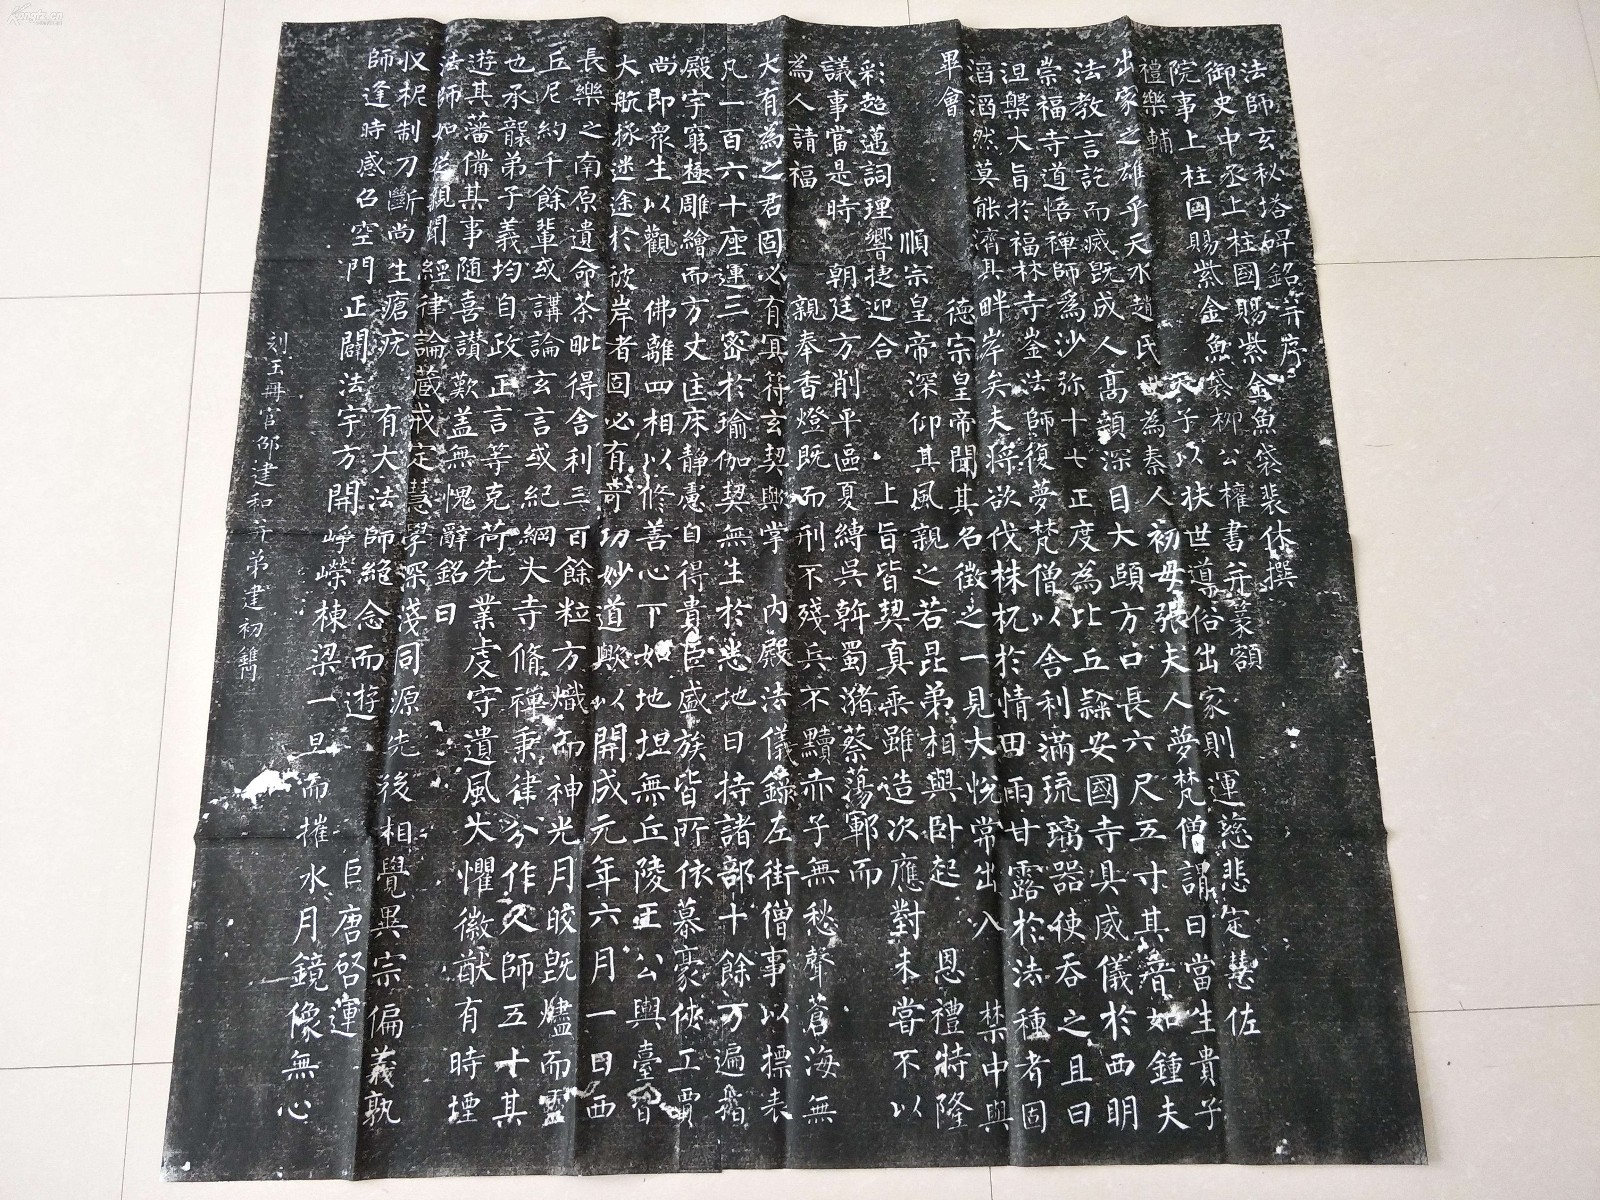 法師玄秘塔碑銘并序
御史中丞上柱國賜紫金魚袋裴休撰
院事上柱國賜紫金魚袋柳公權書并篆額
禮樂輔 天子以扶世導俗出家則運慈悲定慧佐
出家之雄乎天水趙氏世為秦人初母張夫人夢梵僧謂曰當生貴子
法教言訖而滅既成人高顙深目大頤方口長六尺五寸其音如鍾夫
崇福寺道悟禪師為沙弥十七正度為比丘隸安國寺具威儀於西明
涅槃大旨於福林寺崟法師復夢梵僧以舍利滿琉璃器使吞之且曰
滔滔然莫能濟其畔岸矣夫將欲伐株杌於情田雨甘露於法種者固
畢會 德宗皇帝聞其名徵之一見大悅常出入 禁中與
順宗皇帝深仰其風親之若昆弟相與臥起 恩禮特隆
彩超邁詞理響捷迎合 上旨皆契真乘雖造次應對未嘗不以
議事當是時 朝廷方削平區夏縛吳斡蜀瀦蔡蕩鄆而
為人請福 親奉香燈既而刑不殘兵不黷赤子無愁聲蒼海無
大有為之君固必有冥符玄契歟掌 內殿法儀錄左街僧事以摽表
凡一百六十座運三密於瑜伽契無生於悉地日持諸部十餘万遍指
殿宇窮極雕繪而方丈匡床靜慮自得貴臣盛族皆所依慕豪俠工賈
尚即眾生以觀 佛離四相以修善心下如地坦無丘陵王公輿臺皆
大航拯迷途於彼岸者固必有奇功妙道歟以開成元年六月一日西
長樂之南原遺命茶毗得舍利三百餘粒方熾而神光月皎既燼而靈
丘尼約千餘輩或講論玄言或紀綱大寺脩禪秉律分作人師五十其
也承襲弟子義均自政正言等克荷先業虔守遺風大懼徽猷有時堙
遊其藩備其事隨喜讚歎蓋無愧辭銘曰
法師如從親聞經律論藏戒定慧學深淺同源先後相覺異宗偏義孰
收柅制刀斷尚生瘡疣 有大法師絕念而遊 巨唐啓運
師逢時感召空門正闢法宇方開崢嶸棟梁一旦而摧水月鏡像無心
刻玉冊官邵建和并弟建初鐫